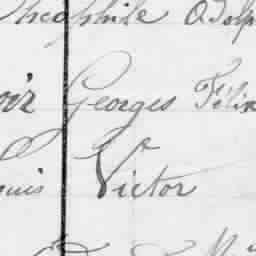 Théophile Adolp
oir Georges Félix
ouis Victor